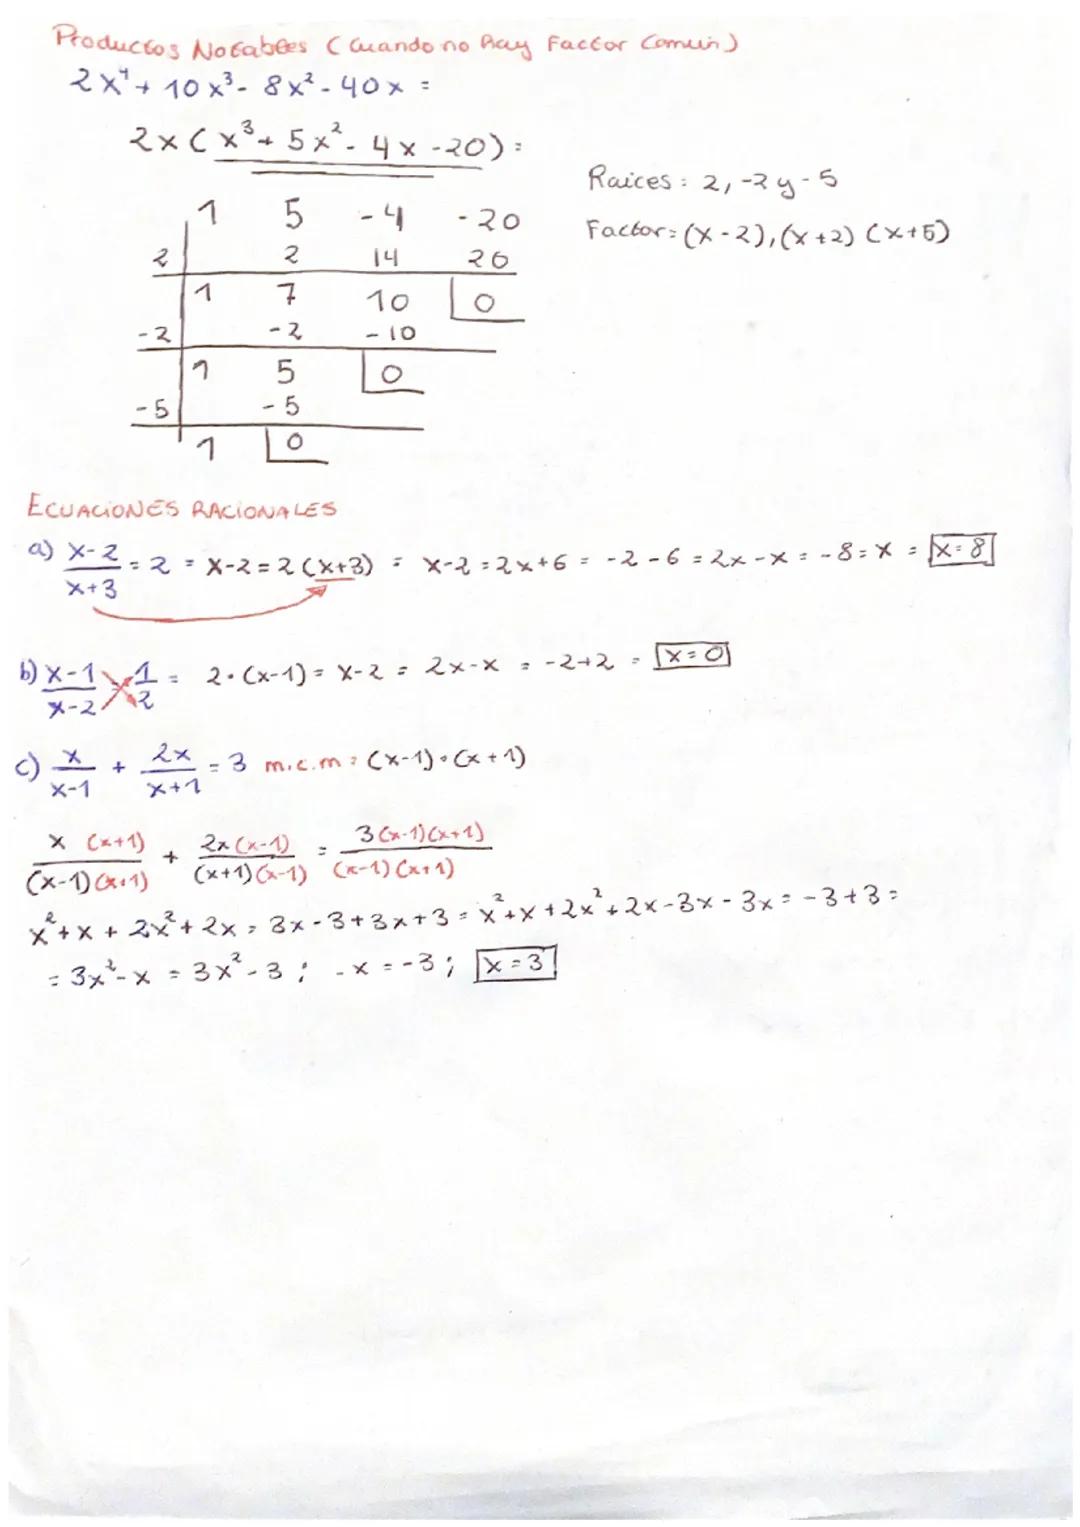 Productos Notables (Cuando no hay Factor Comun)
2x⁴ + 10x³ - 8x² - 40x =
2x (x³ + 5x² - 4x - 20) =
Raices: 2, -2 y -5
Factor: (x-2), (x+2) (x+5)
1 5 -4 -20
2 2 14 20
1 7 10 0
-2 -2 -10
1 5 0
-5 -5
1 0
ECUACIONES RACIONALES
a) x-2/x+3 = 2 = x-2 = 2(x+3) = x-2 = 2x+6 = -2-6 = 2x-x = -8 = x = x=8
b) x-1/x-2 = 1/2 = 2·(x-1) = x-2 = 2x-x = -2+2 = x=0
c) x/x-1 + 2x/x+1 = 3 m.c.m: (x-1)·(x+1)
x (x+1)/(x-1)(x+1) + 2x(x-1)/(x+1)(x-1) = 3(x-1)(x+1)/(x-1)(x+1)
x²+x + 2x²+2x = 3x-3+3x+3 = x²+x+2x²+2x-3x-3x = -3+3 =
= 3x²-x = 3x²-3; -x = -3; x=3